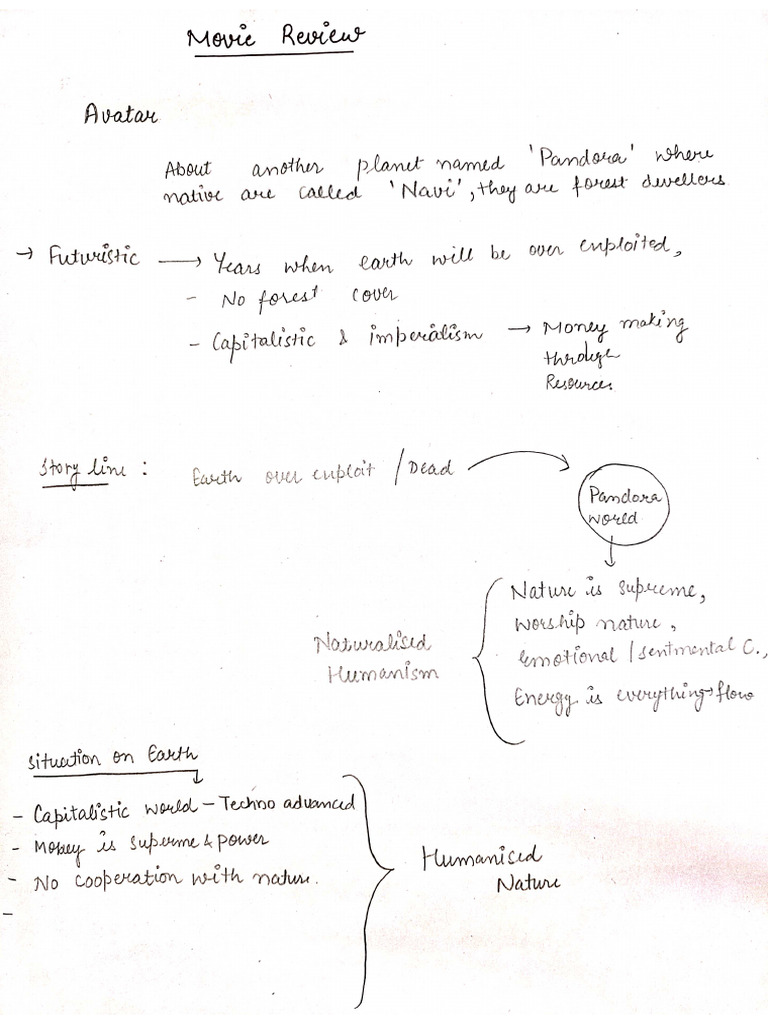 Movie Review
Avatar
About another planet named 'Pandora' where
native are called 'Navi', they are forest dwellers.
→ Futuristic → Years when earth will be over exploited,
- No forest cover
- Capitalistic & imperalism → Money making
through
Resources.
Story line : Earth over exploit / Dead
Pandora
world
Nature is supreme,
worship nature,
emotional / sentmental C.,
Energy is everything → flow
Naturalised
Humanism
Situation on Earth
- Capitalistic world - Techno advanced
- Money is superme & power
- No cooperation with nature.
-
Humanised
Nature